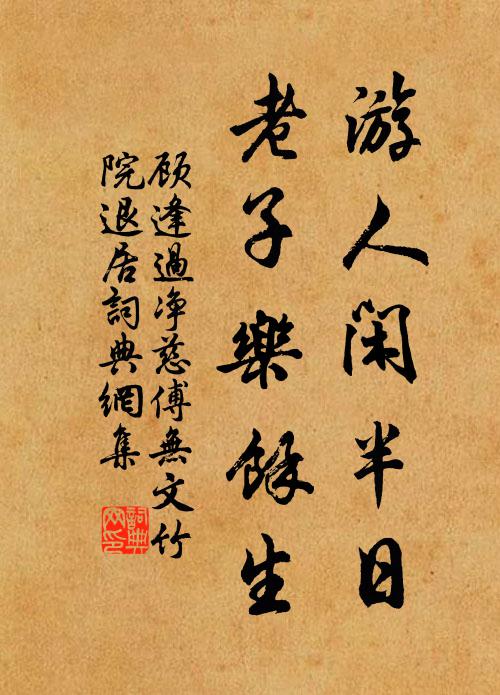 游人閑半日
老子樂餘生
顾逢過净慈傅無文竹
院退居詞典網集